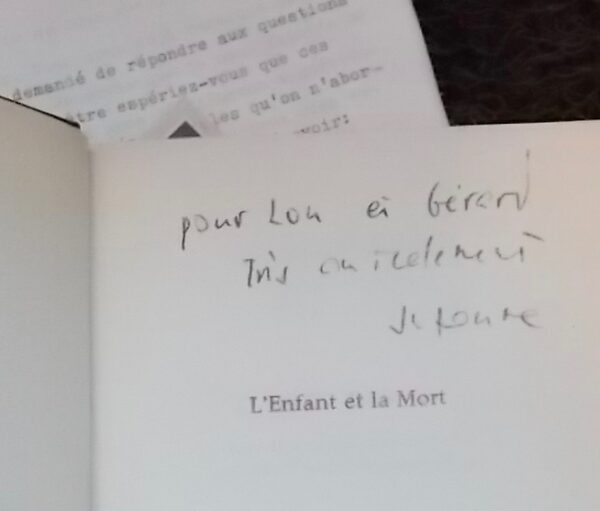 demandé de répondre aux questions
être espériez-vous que ces
les qu'on n'abor-
voir:
pour Lou et Gérard
Très amicalement
L'Enfant et la Mort